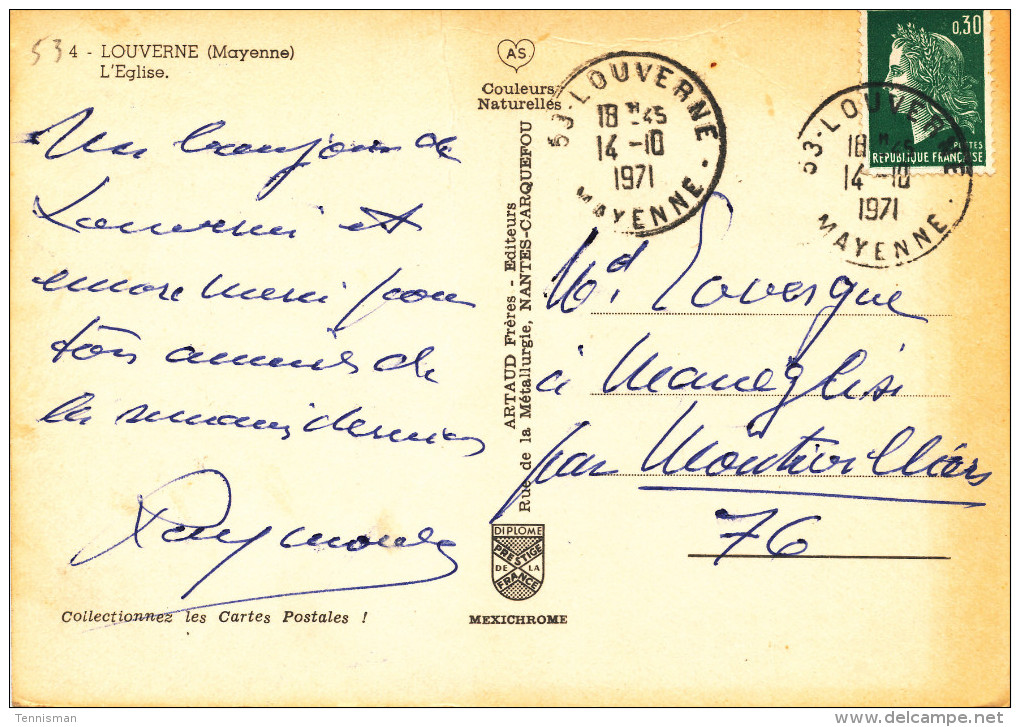 53 4 - LOUVERNE (Mayenne)
L'Eglise.
Un bonjour de
Louverné et
encore merci pour
ton amies de
la semaine dernier
Raymonde
Collectionnez les Cartes Postales !
AS
Couleurs
Naturelles
ARTAUD Frères - Editeurs
Rue de la Métallurgie, NANTES-CARQUEFOU
DIPLOME
PRESTIGE
DE LA
FRANCE
MEXICHROME
53-LOUVERNE
18 H 45
14 -10
1971
MAYENNE
0,30
POSTES
REPUBLIQUE FRANÇAISE
53-LOUVERNE
18 H 45
14 -10
1971
MAYENNE
Md. Lavergne
à Maneglise
par Montivilliers
76
Tennisman
delcampe.net